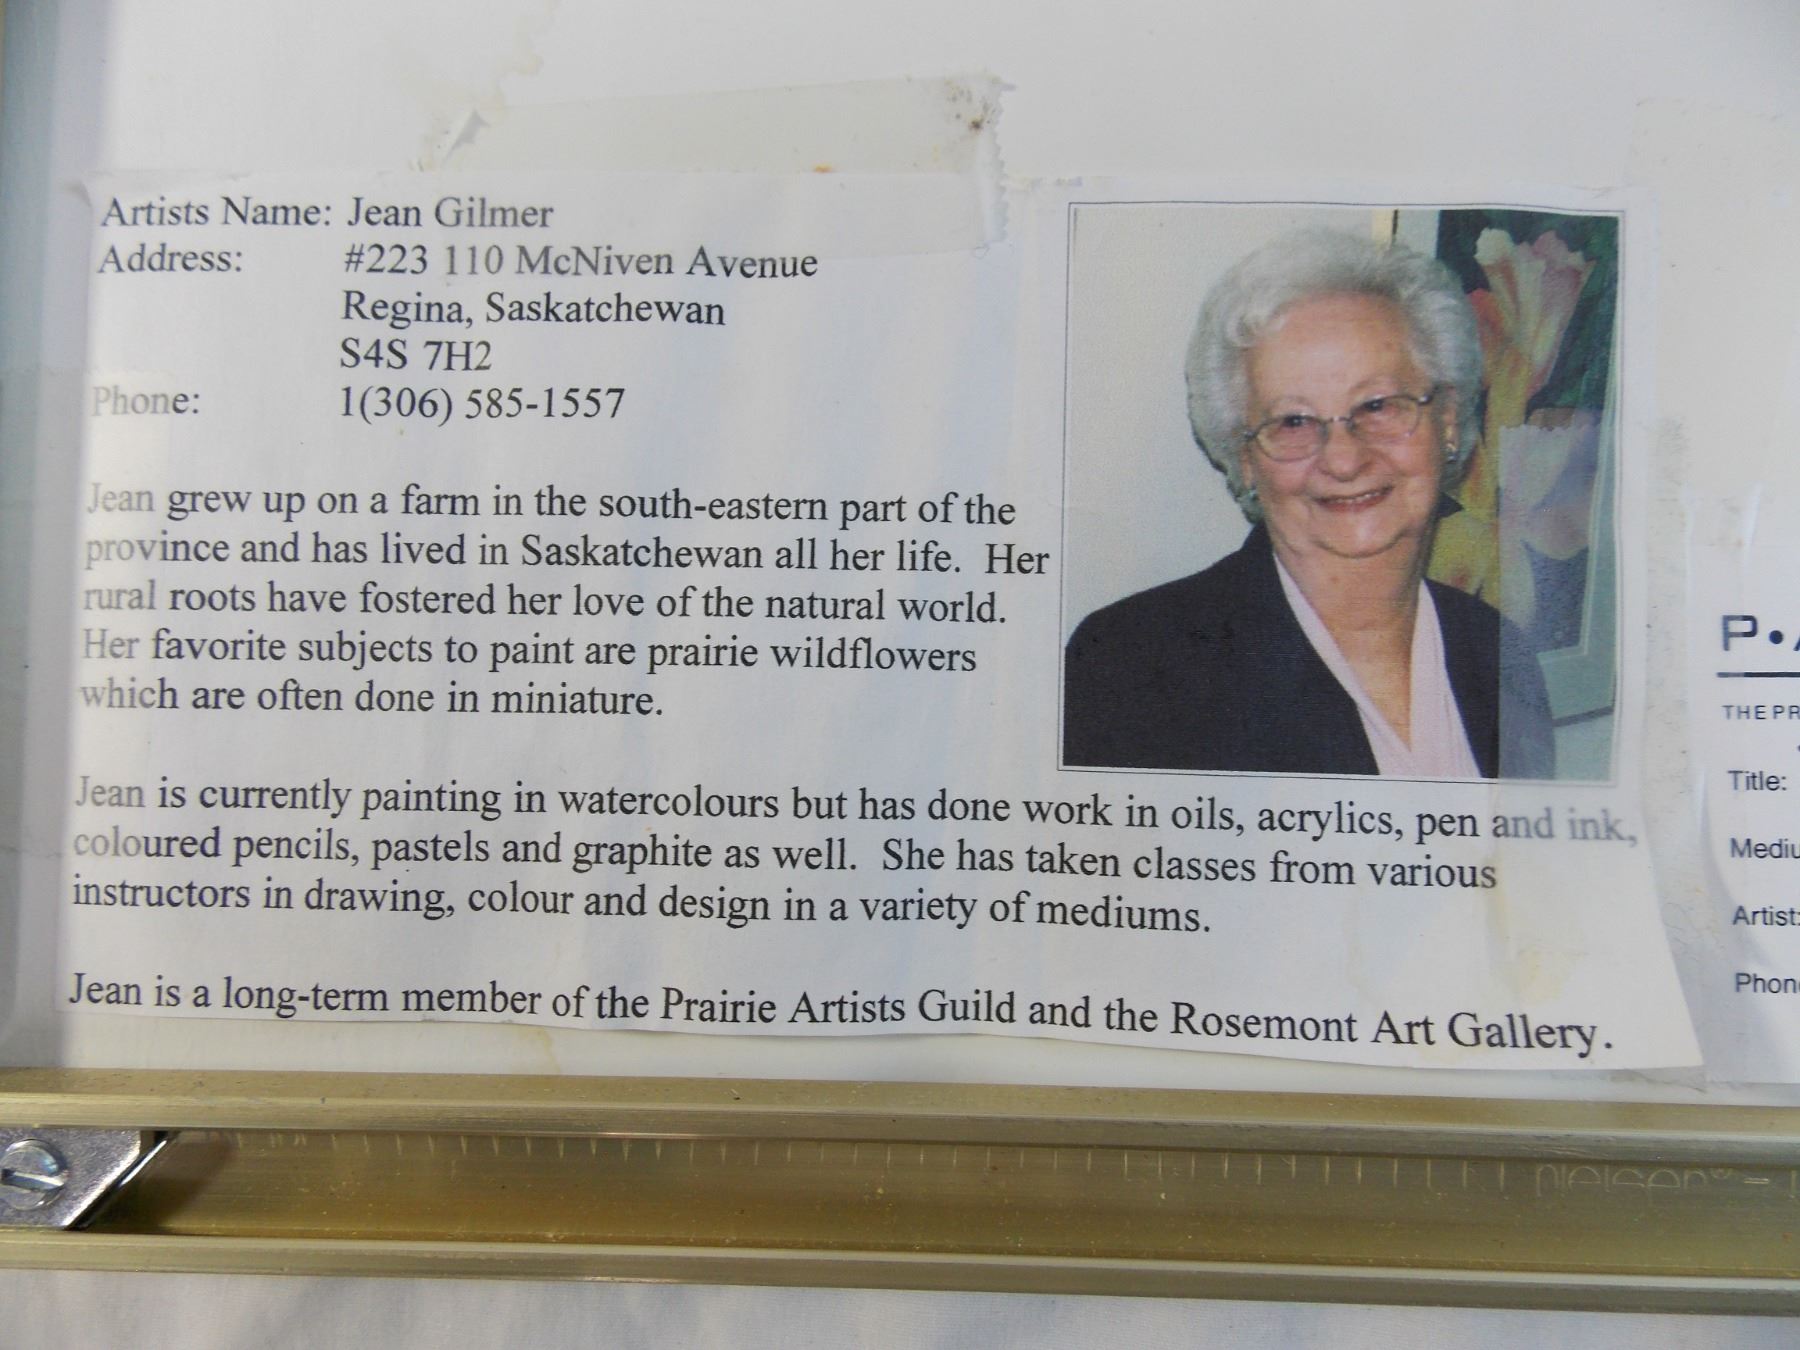 Artists Name: Jean Gilmer
Address: #223 110 McNiven Avenue
Regina, Saskatchewan
S4S 7H2
Phone: 1(306) 585-1557
Jean grew up on a farm in the south-eastern part of the
province and has lived in Saskatchewan all her life. Her
rural roots have fostered her love of the natural world.
Her favorite subjects to paint are prairie wildflowers
which are often done in miniature.
Jean is currently painting in watercolours but has done work in oils, acrylics, pen and ink,
coloured pencils, pastels and graphite as well. She has taken classes from various
instructors in drawing, colour and design in a variety of mediums.
Jean is a long-term member of the Prairie Artists Guild and the Rosemont Art Gallery.
P•
THE PR
Title:
Mediu
Artist:
Phon
nielsen®